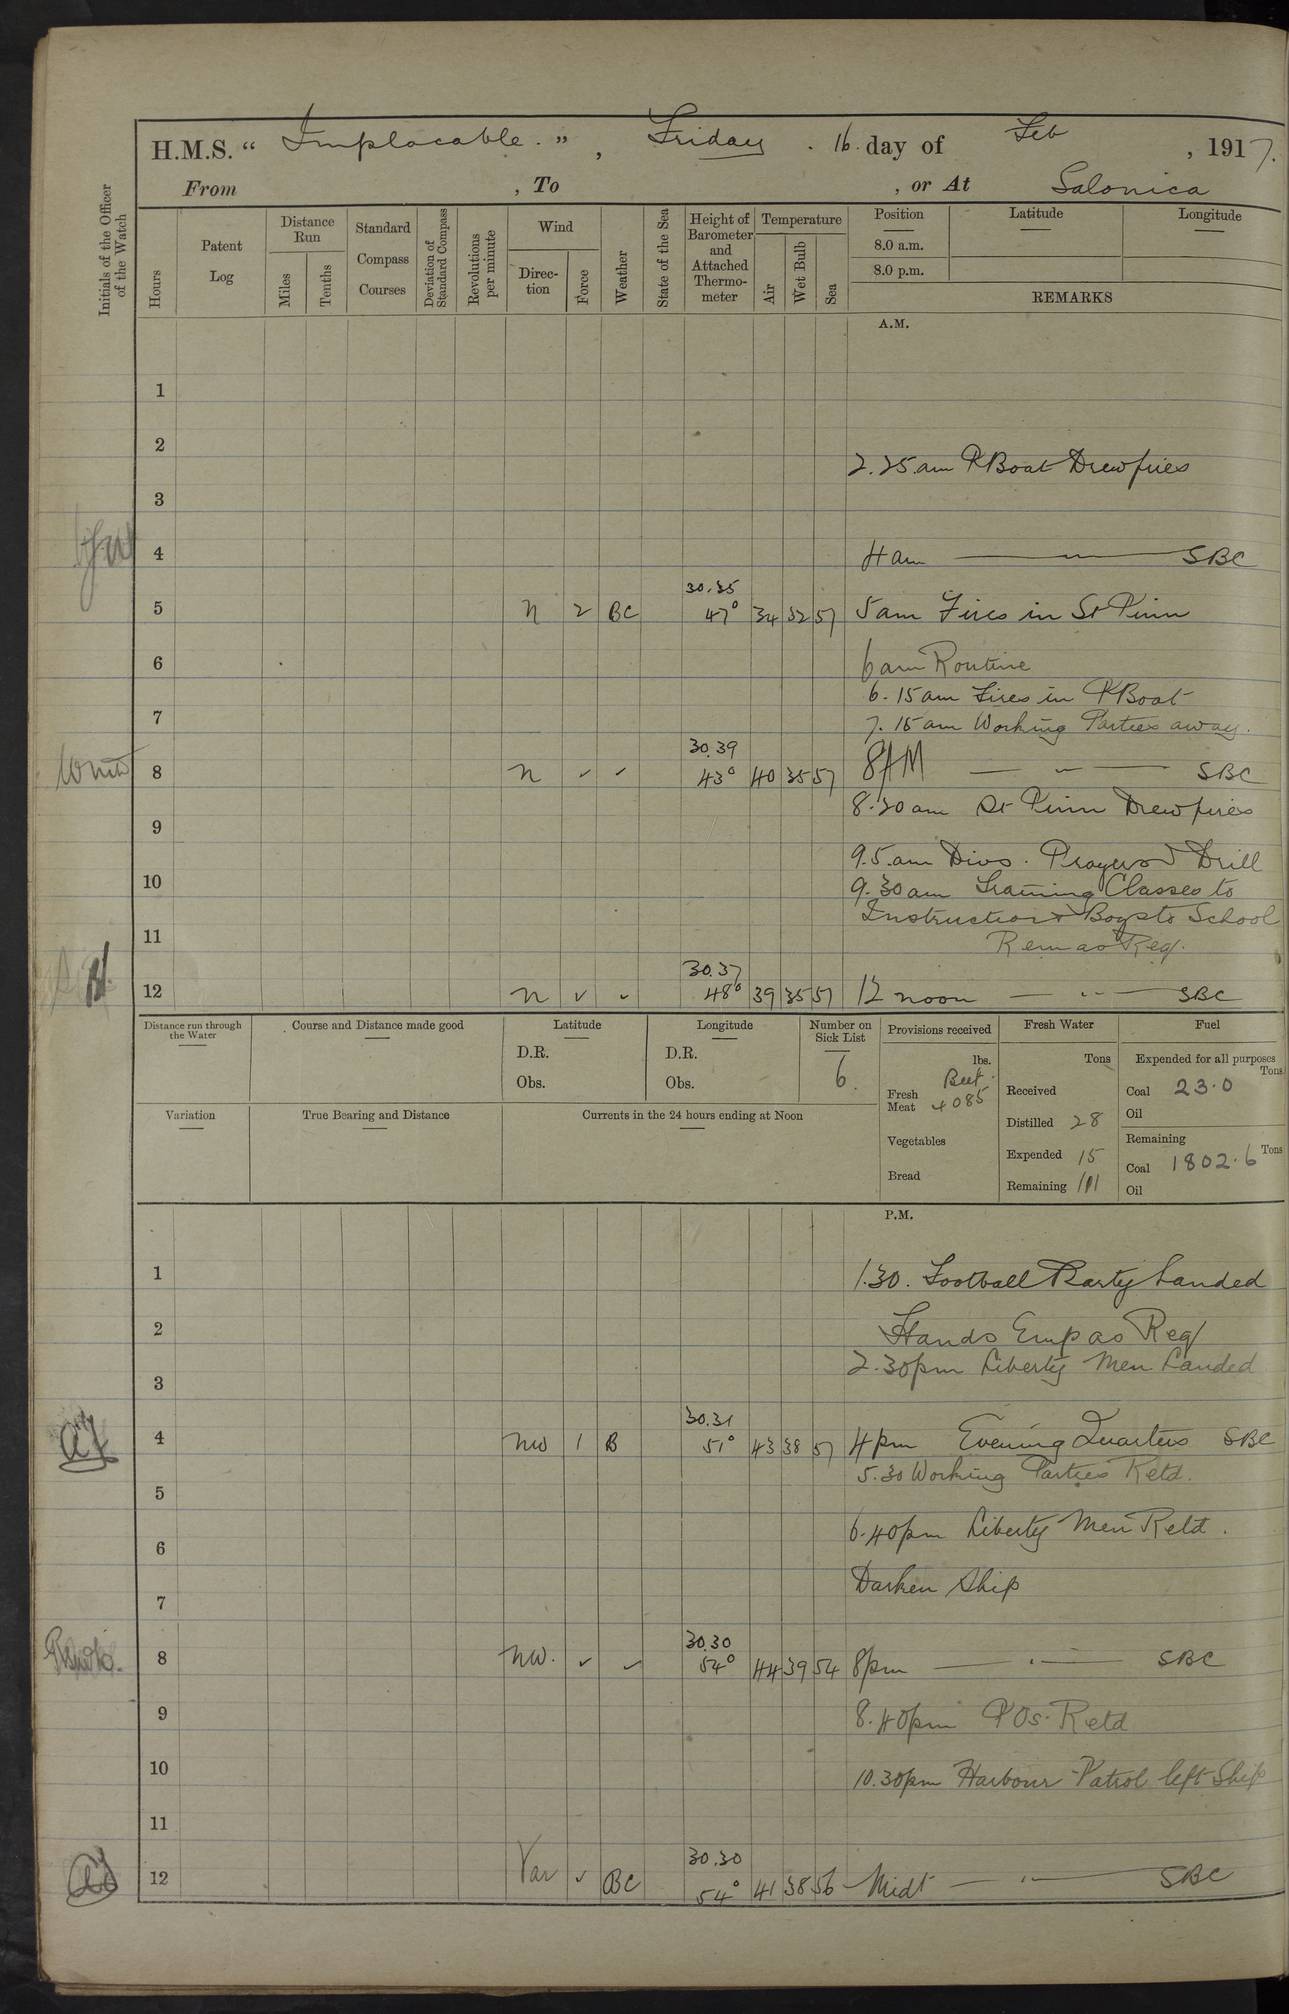 H.M.S. “ Implacable. ” , Friday . 16. day of Feb , 1917.
From , To , or At Salonica
Initials of the Officer of the Watch
Hours
Patent Log
Distance Run
Miles
Tenths
Standard Compass Courses
Deviation of Standard Compass
Revolutions per minute
Wind
Direction
Force
Weather
State of the Sea
Height of Barometer and Attached Thermometer
Temperature
Air
Wet Bulb
Sea
Position
Latitude
Longitude
8.0 a.m.
8.0 p.m.
REMARKS
A.M.
1
2
2.25 am PBoat Drew fires
3
4 4 am — " — SBC
30.35
5 N 2 BC 47° 34 32 57 5 am Fires in St Pinn
6 6 am Routine
6.15 am Fires in PBoat
7 7.15 am Working Parties away.
30.39
8 N ✓ ✓ 43° 40 35 57 8 AM — " — SBC
8.20 am St Pinn Drew fires
9
9.5. am Divs. Prayers & Drill
10 9.30 am Training Classes to
Instruction & Boys to School
11 Rem as Req.
30.37
12 N ✓ ✓ 48° 39 35 57 12 noon — " — SBC
Distance run through the Water
Course and Distance made good
Latitude
D.R.
Obs.
Longitude
D.R.
Obs.
Number on Sick List
6.
Provisions received
lbs.
Fresh Meat Beef. 4085
Vegetables
Bread
Fresh Water
Tons
Received
Distilled 28
Expended 15
Remaining 111
Fuel
Expended for all purposes
Tons
Coal 23.0
Oil
Remaining
Coal 1802.6 Tons
Oil
Variation
True Bearing and Distance
Currents in the 24 hours ending at Noon
P.M.
1 1.30. Football Party Landed
2 Hands Emp as Req
2.30pm Liberty Men Landed
3
30.31
4 NW 1 B 51° 43 38 57 4pm Evening Quarters SBC
5.30 Working Parties Retd.
5
6.40pm Liberty Men Retd.
6
Darken Ship
7
30.30
8 NW. ✓ ✓ 54° 44 39 54 8pm — " — SBC
9 8.40pm POs. Retd
10 10.30pm Harbour Patrol left Ship
11
30.30
12 Var ✓ BC 54° 41 38 56 Midt — " — SBC